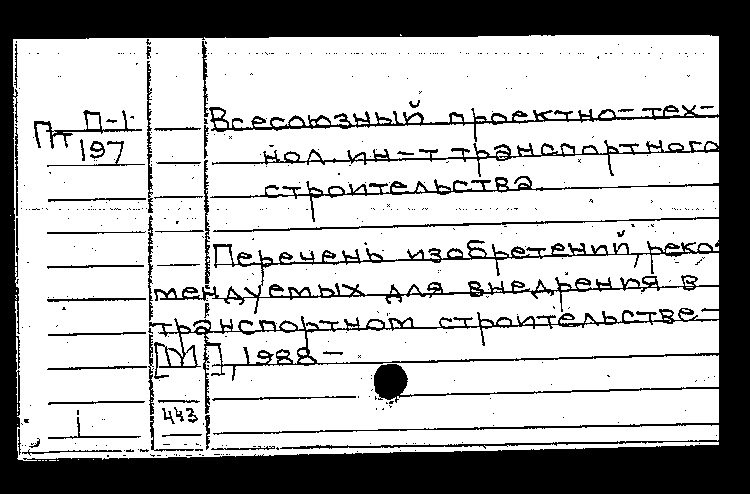 Пт П-1
197
Всесоюзный проектно-тех-
нол. ин-т транспортного
строительства.
Перечень изобретений, реко-
мендуемых для внедрения в
транспортном строительстве.-
[М], 1988 -
1
443